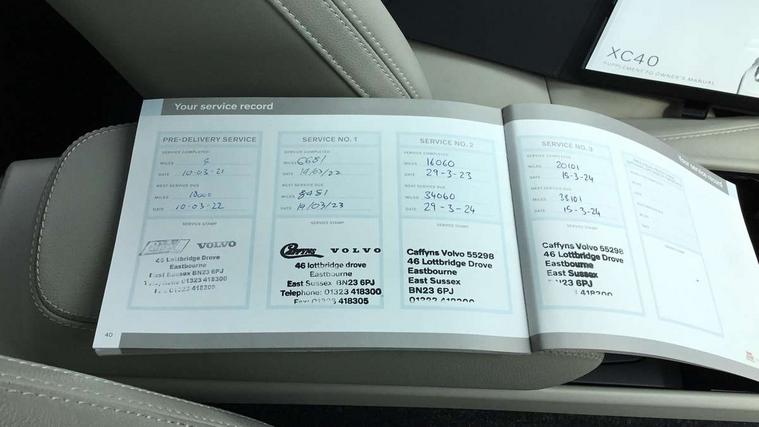 XC40
SUPPLEMENT TO OWNER'S MANUAL
Your service record
PRE-DELIVERY SERVICE
SERVICE COMPLETED
MILES 4
DATE 10-03-21
NEXT SERVICE DUE
MILES
DATE 10-03-22
SERVICE STAMP
VOLVO
46 Lottbridge drove
Eastbourne
East Sussex BN23 6PJ
Telephone 01323 418300
418305
SERVICE NO. 1
SERVICE COMPLETED
MILES 6681
DATE 14/03/22
NEXT SERVICE DUE
MILES
DATE 14/03/23
SERVICE STAMP
CAFFYNS VOLVO
46 lottbridge drove
Eastbourne
East Sussex BN23 6PJ
Telephone: 01323 418300
Fax: 01323 418305
SERVICE NO. 2
SERVICE COMPLETED
MILES 16060
DATE 29-3-23
NEXT SERVICE DUE
MILES 34060
DATE 29-3-24
SERVICE STAMP
Caffyns Volvo 55298
46 Lottbridge Drove
Eastbourne
East Sussex
BN23 6PJ
01323 418300
40
SERVICE NO. 3
SERVICE COMPLETED
MILES 20101
DATE 15-3-24
NEXT SERVICE DUE
MILES 38101
DATE 15-3-24
SERVICE STAMP
Caffyns Volvo 55298
46 Lottbridge Drove
Eastbourne
East Sussex
BN23 6PJ
418300
Your service record